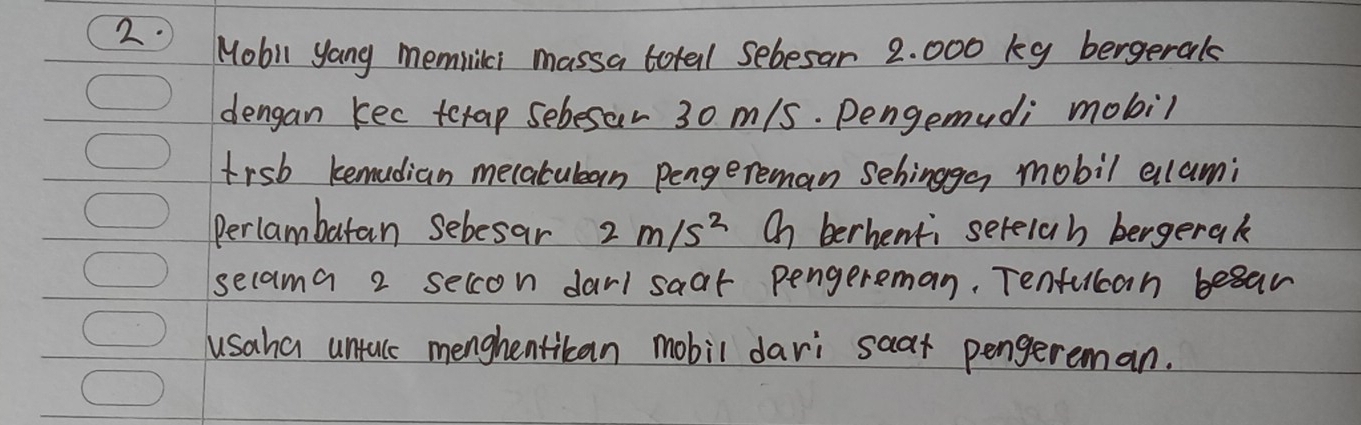 2. Mobil yang memiliki massa total sebesar 2.000 kg bergerak
dengan kec tetap sebesar 30 m/s. Pengemudi mobil
trsb kemudian melakukan pengereman sehingga mobil alami
perlambatan sebesar 2 m/s² & berhenti setelah bergerak
selama 2 secon dari saat pengereman. Tentukan besar
usaha untuk menghentikan mobil dari saat pengereman.